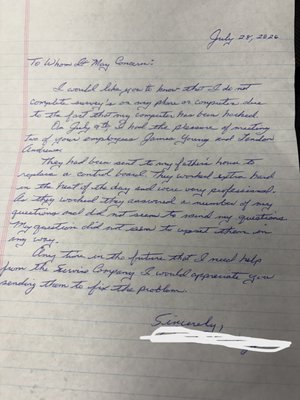 July 28, 2020
To Whom It May Concern:
I would like you to know that I do not
complete survey's on my phone or computer due
to the fact that my computer has been hacked.
On July 9th I had the pleasure of meeting
two of your employees James Young and Landon
Anderson.
They had been sent to my father's home to
replace a control board. They worked extra hard
in the heat of the day and were very professional.
As they worked they answered a number of my
questions and did not seem to mind my questions.
My question did not seem to upset them in
any way.
Any time in the future that I need help
from the Service Company I would appreciate you
sending them to fix the problem.
Sincerely,